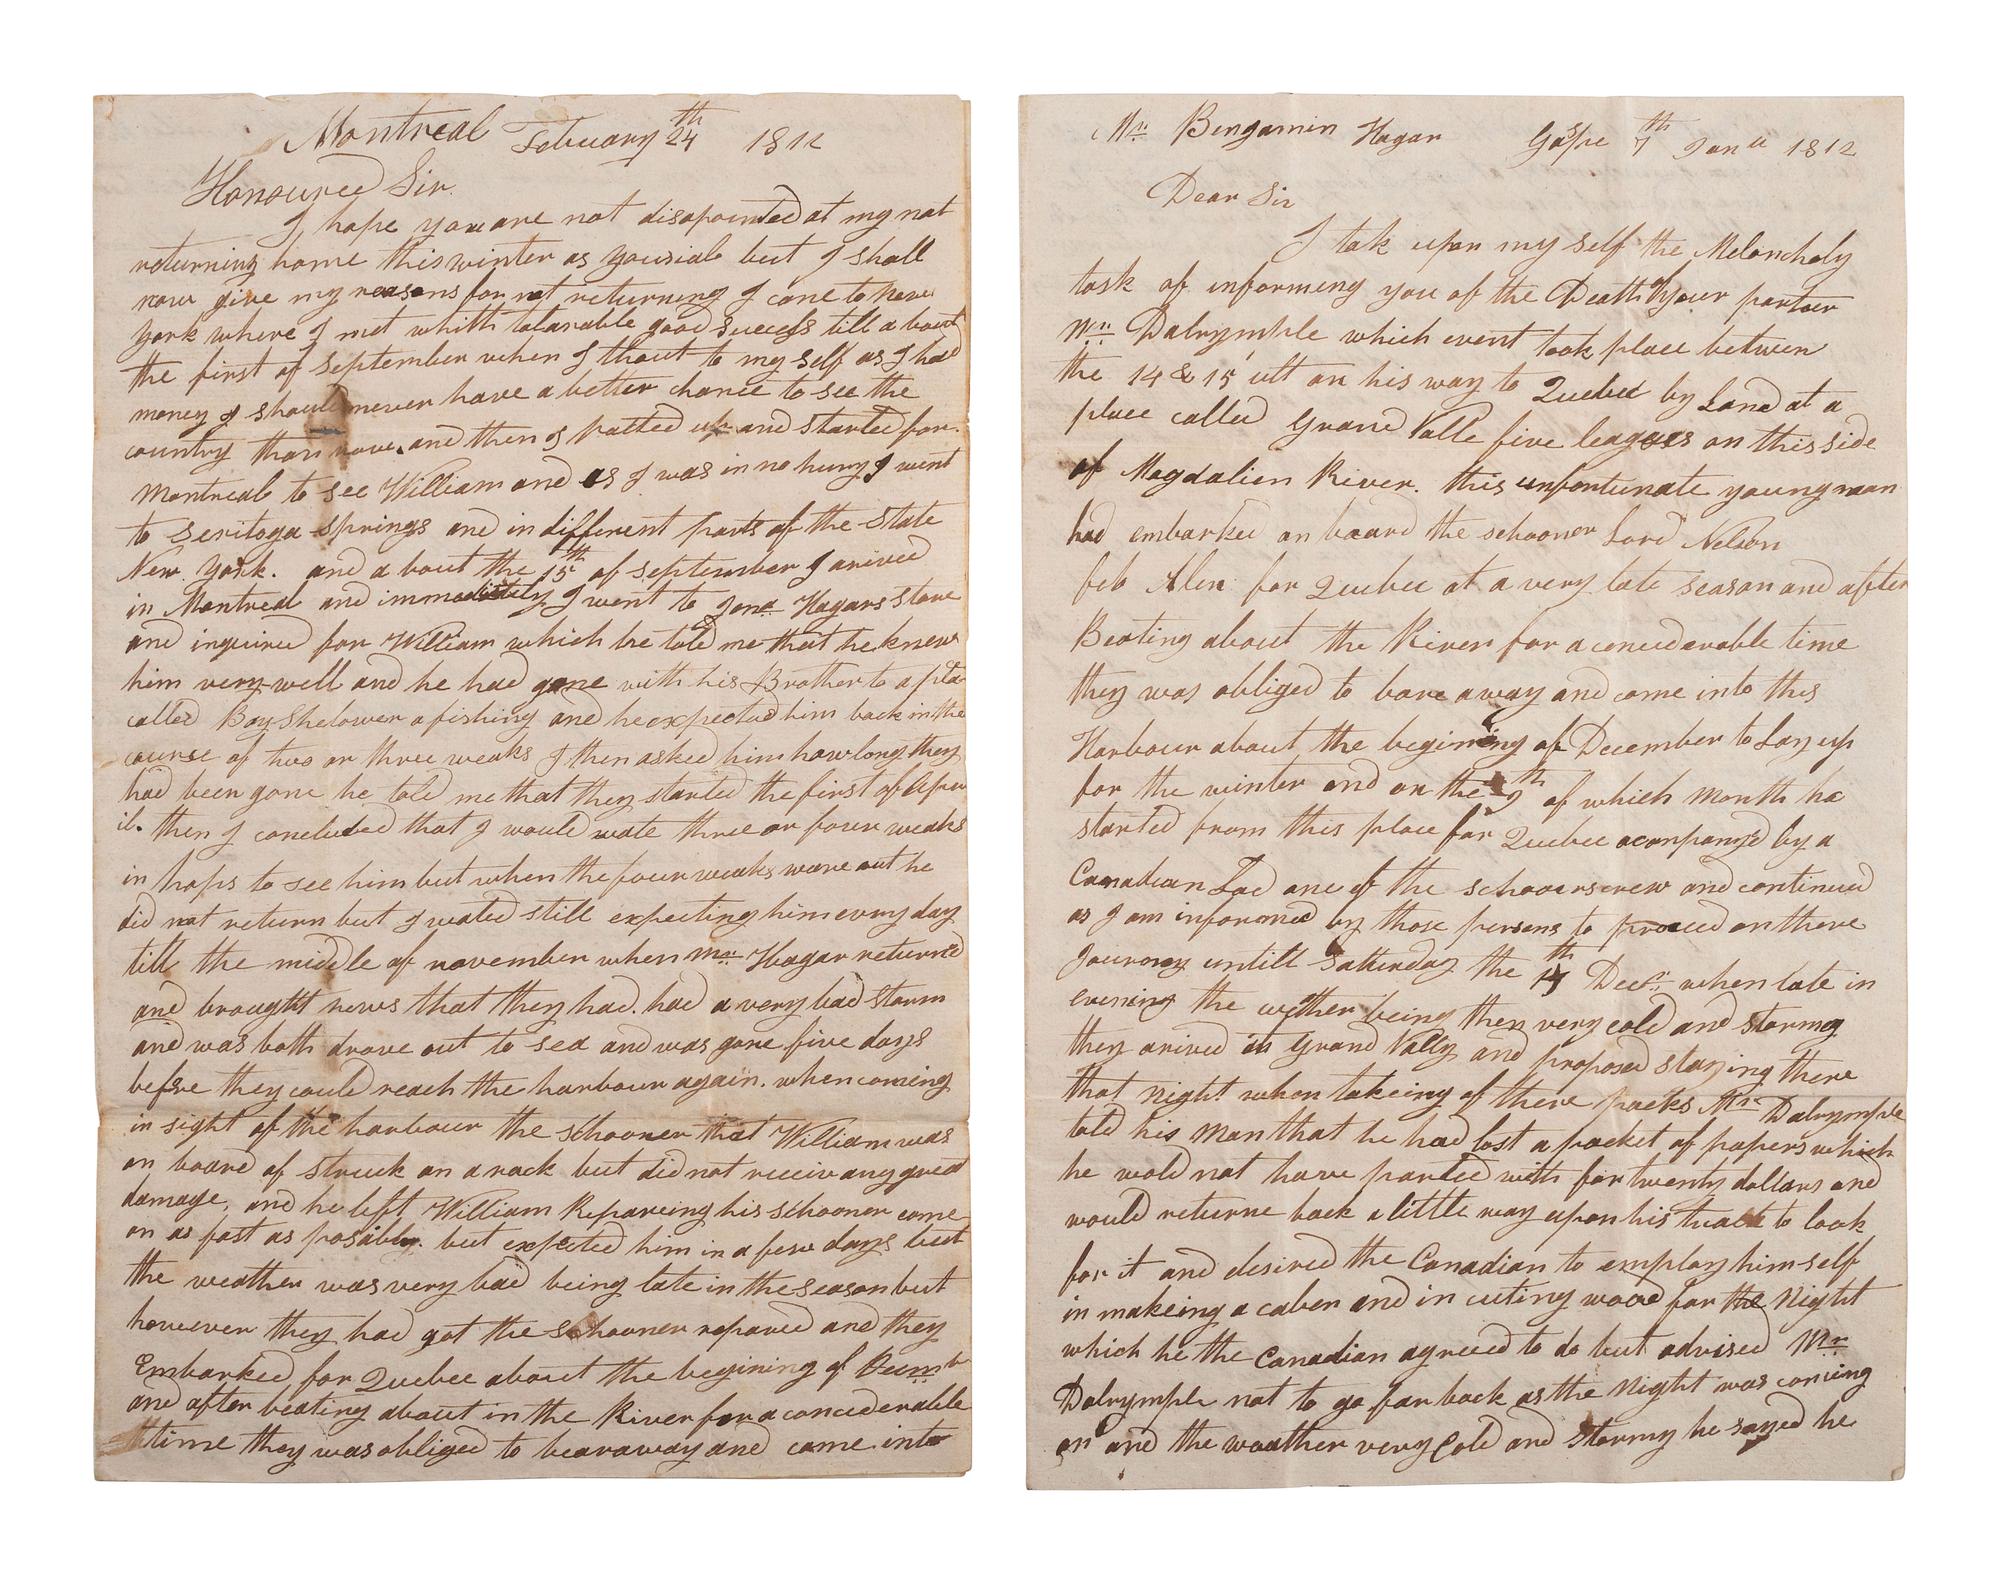 Montreal February 24th 1812
Honoured Sir.
I hope you are not disapointed at my not
returning home this winter as yousial but I shall
now give my reasons for not returning I came to New
York where I met whith tolarable good success till a bout
the first of September when I thout to my self as I had
money I should never have a better chance to see the
country than now. and then I putted up and started for
Montreal to see William and as I was in no hurry I went
to Seritoga Springs and in different parts of the State
New York. and a bout the 15th of September I arived
in Montreal and immediately I went to Jona Hagars store
and inquired for William which he told me that he knew
him very well and he had gone with his Brother to a pla
called Bay Shelower a fishing and he expected him back in the
course of two or three weaks I then asked him how long they
had been gone he told me that they started the first of Apr
il. then I concluded that I would wate three or four weaks
in hops to see him but when the four weaks ware out he
did not return but I wated still expecting him every day
till the middle of november when Mr Hagar returned
and brought news that they had. had a very bad storm
and was both drove out to sea and was gone five days
before they could reach the harbour again. when coming
in sight of the harbour the schooner that William was
on board of struck on a rock but did not receiv any great
damage. and he left William Repareing his schooner come
on as fast as posibly. but expected him in a few days but
the weather was very bad being late in the season but
however they had got the schooner repared and they
Embarked for Quebec about the begining of Decmbr
and after beating about in the River for a conciderable
time they was obliged to bear away and came into
Mr Benjamin Hagar Gaspe 7th Janu 1812
Dear Sir
I tak upon my self the Melancholy
task of informing you of the Death of your partner
Mr Dalrymple which event took place between
the 14 & 15 ult on his way to Quebec by Land at a
place called Grand Valle five leagues on this side
of Magdalien River. this unfortunate young man
had embarked on board the schooner Lord Nelson
feb Alen for Quebec at a very late season and after
Beating about the River for a conciderable time
they was obliged to bare away and come into this
Harbour about the begining of December to Lay up
for the winter and on the 9th of which month he
started from this place for Quebec acompanyd by a
Canadian Lad one of the schooners crew and continued
as I am informed by those persons to proceed on there
Journey untill Satturday the 14th Decr when late in
evening the wether being then very cold and stormy
they arived in Grand Vally and proposed staying there
that Night when takeing of there packs Mr Dalrymple
told his Man that he had lost a packet of papers which
he wold not have parted with for twenty dollars and
would returne back a little way upon his track to look
for it and desired the Canadian to employ himself
in makeing a caben and in cuting wood for the Night
which he the Canadian agreed to do but advised Mr
Dalrymple not to go far back as the Night was comeing
on and the weather very Cold and stormy he sayed he